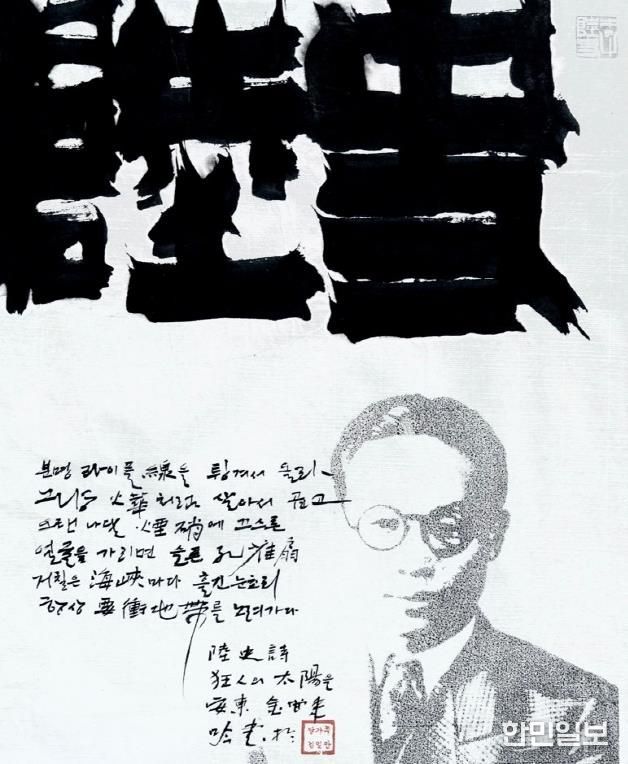 분명 라이플 線을 튕겨서 올라
그냥 火華처럼 살아서 곱고
오랜 나달 煙硝에 끄스른
얼굴을 가리면 슬픈 孔雀扇
거칠은 海峽마다 흘긴 눈초리
항상 要衝地帶를 노려가다
陸史詩
狂人의 太陽을
安東
한민일보